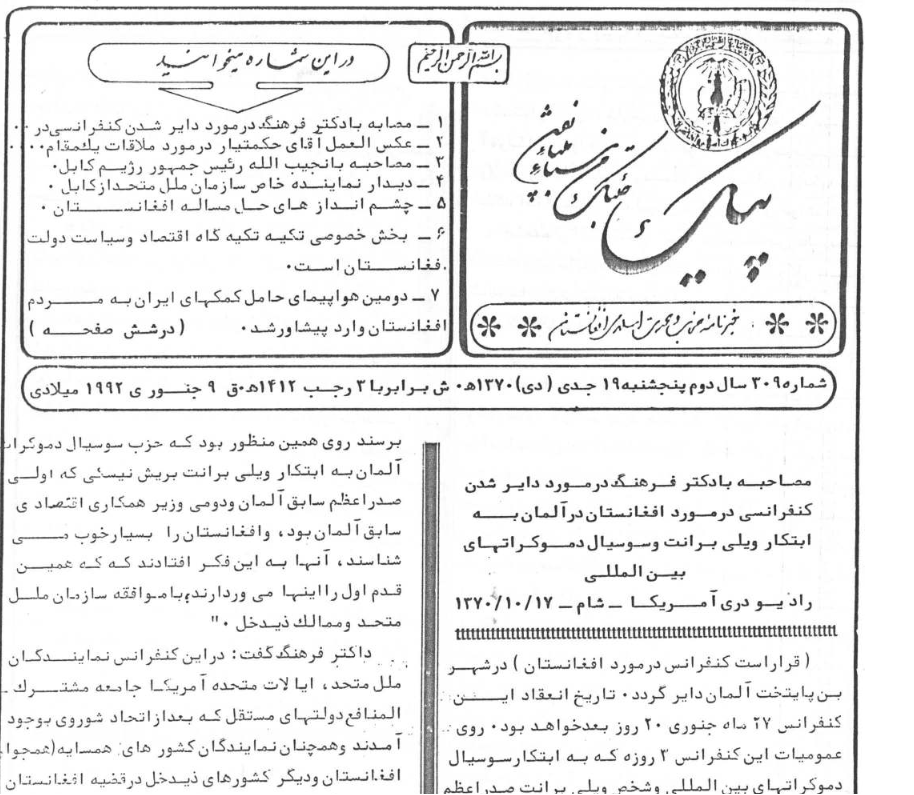 بسم الله الرحمن الرحیم
پیام
خبرنامه حزب وحدت اسلامی افغانستان
در این شماره میخوانید
۱ ــ مصابه بادکتر فرهنگ درمورد دایر شدن کنفرانسی در ۰۰
۲ ــ عکس العمل آقای حکمتیار درمورد ملاقات یکمقام۰۰۰۰
۳ ــ مصاحبه بانجیب الله رئیس جمهور رژیم کابل۰
۴ ــ دیدار نماینده خاص سازمان ملل متحد از کابل ۰
۵ ــ چشم انداز های حل مساله افغانستان ۰
۶ ــ بخش خصوصی تکیه تکیه گاه اقتصاد وسیاست دولت
فغانستان است۰
۷ ــ دومین هواپیمای حامل کمکهای ایران به مردم
افغانستان وارد پیشاور شد۰ (درشش صفحه )
شماره ۳۰۹ سال دوم پنجشنبه ۱۹ جدی (دی) ۱۳۷۰ه۰ ش برابر با ۳ رجب ۱۴۱۲ه۰ق ۹ جنوری ۱۹۹۲ میلادی
مصاحبه بادکتر فرهنگ درمورد دایر شدن
کنفرانسی درمورد افغانستان درآلمان به
ابتکار ویلی برانت وسوسیال دموکراتهای
بین المللی
رادیو دری آمریکا ــ شام ــ ۱۳۷۰/۱۰/۱۷
( قراراست کنفرانس درمورد افغانستان ) درشهر
بن پایتخت آلمان دایر گردد۰ تاریخ انعقاد این
کنفرانس ۲۷ ماه جنوری ۲۰ روز بعدخواهد بود۰ روی
عمومیات این کنفرانس ۳ روزه که به ابتکارسوسیال
دموکراتهای بین المللی وشخص ویلی برانت صدراعظم
برسند روی همین منظور بود که حزب سوسیال دموکرات
آلمان به ابتکار ویلی برانت بریش نیستی که اولی
صدراعظم سابق آلمان ودومی وزیر همکاری اقتصادی
سابق آلمان بود، وافغانستان را بسیارخوب می
شناسند، آنها به این فکر افتادند که که همین
قدم اول را اینها می وردارند، باموافقه سازمان ملل
متحد وممالك ذیدخل ۰"
داکتر فرهنگ گفت: دراین کنفرانس نمایندگان
ملل متحد، ایالات متحده آمریکا جامعه مشترك
المنافع دولتهای مستقل که بعداز اتحاد شوروی بوجود
آمدند وهمچنان نمایندگان کشور های همسایه(همجوا
افغانستان ودیگر کشورهای ذیدخل درقضیه افغانستان